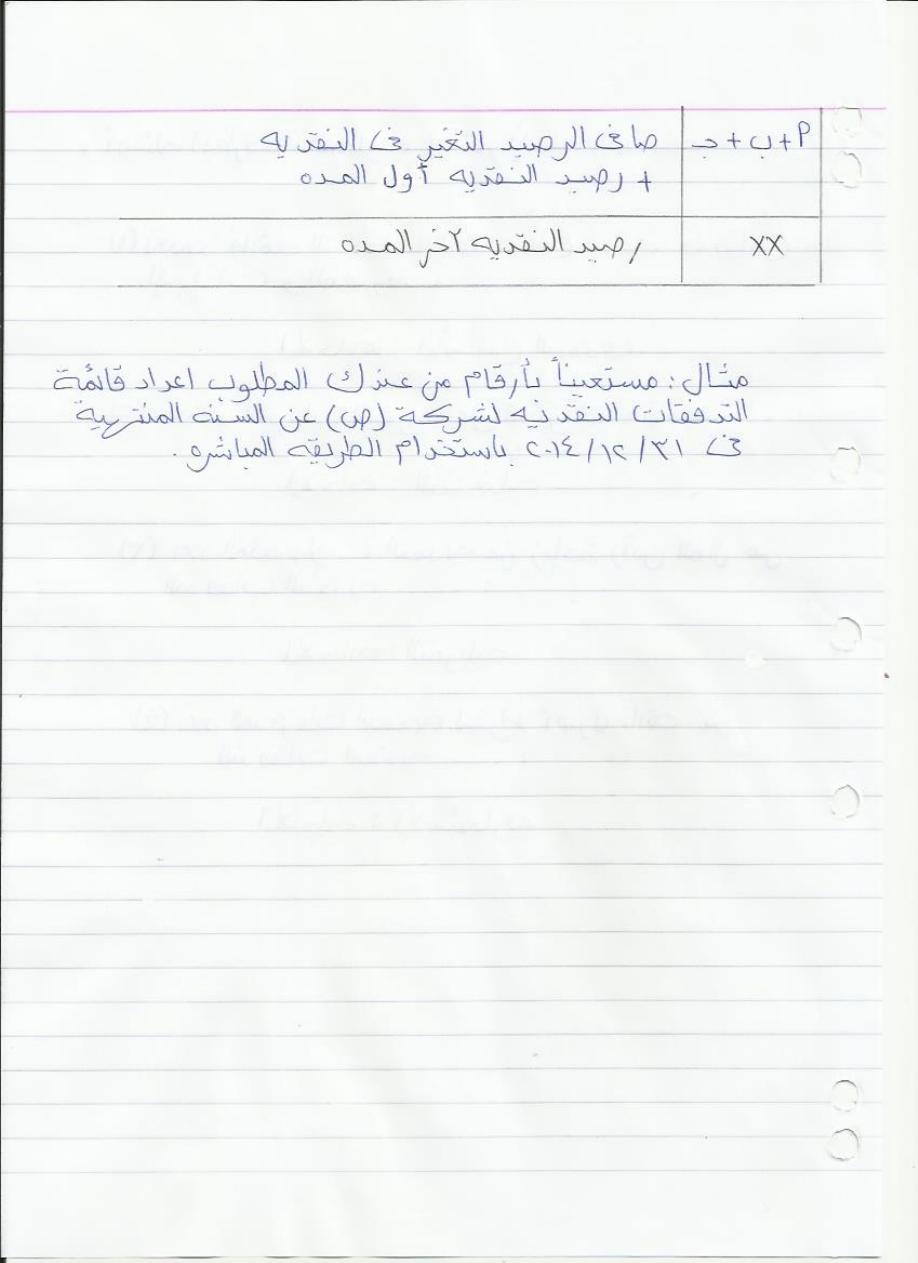 أ + ب + جـ صافى الرصيد التغير فى النقديه
+ رصيد النقديه أول المده
XX رصيد النقديه آخر المده
مثال: مستعيناً بأرقام من عندك المطلوب اعداد قائمة
التدفقات النقديه لشركة (ص) عن السنه المنتهية
فى ٣١/١٢/٢٠١٤ باستخدام الطريقه المباشره.